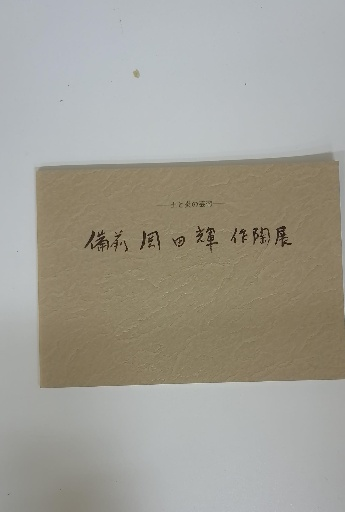 —土と炎の芸術—
備前 岡田輝 作陶展